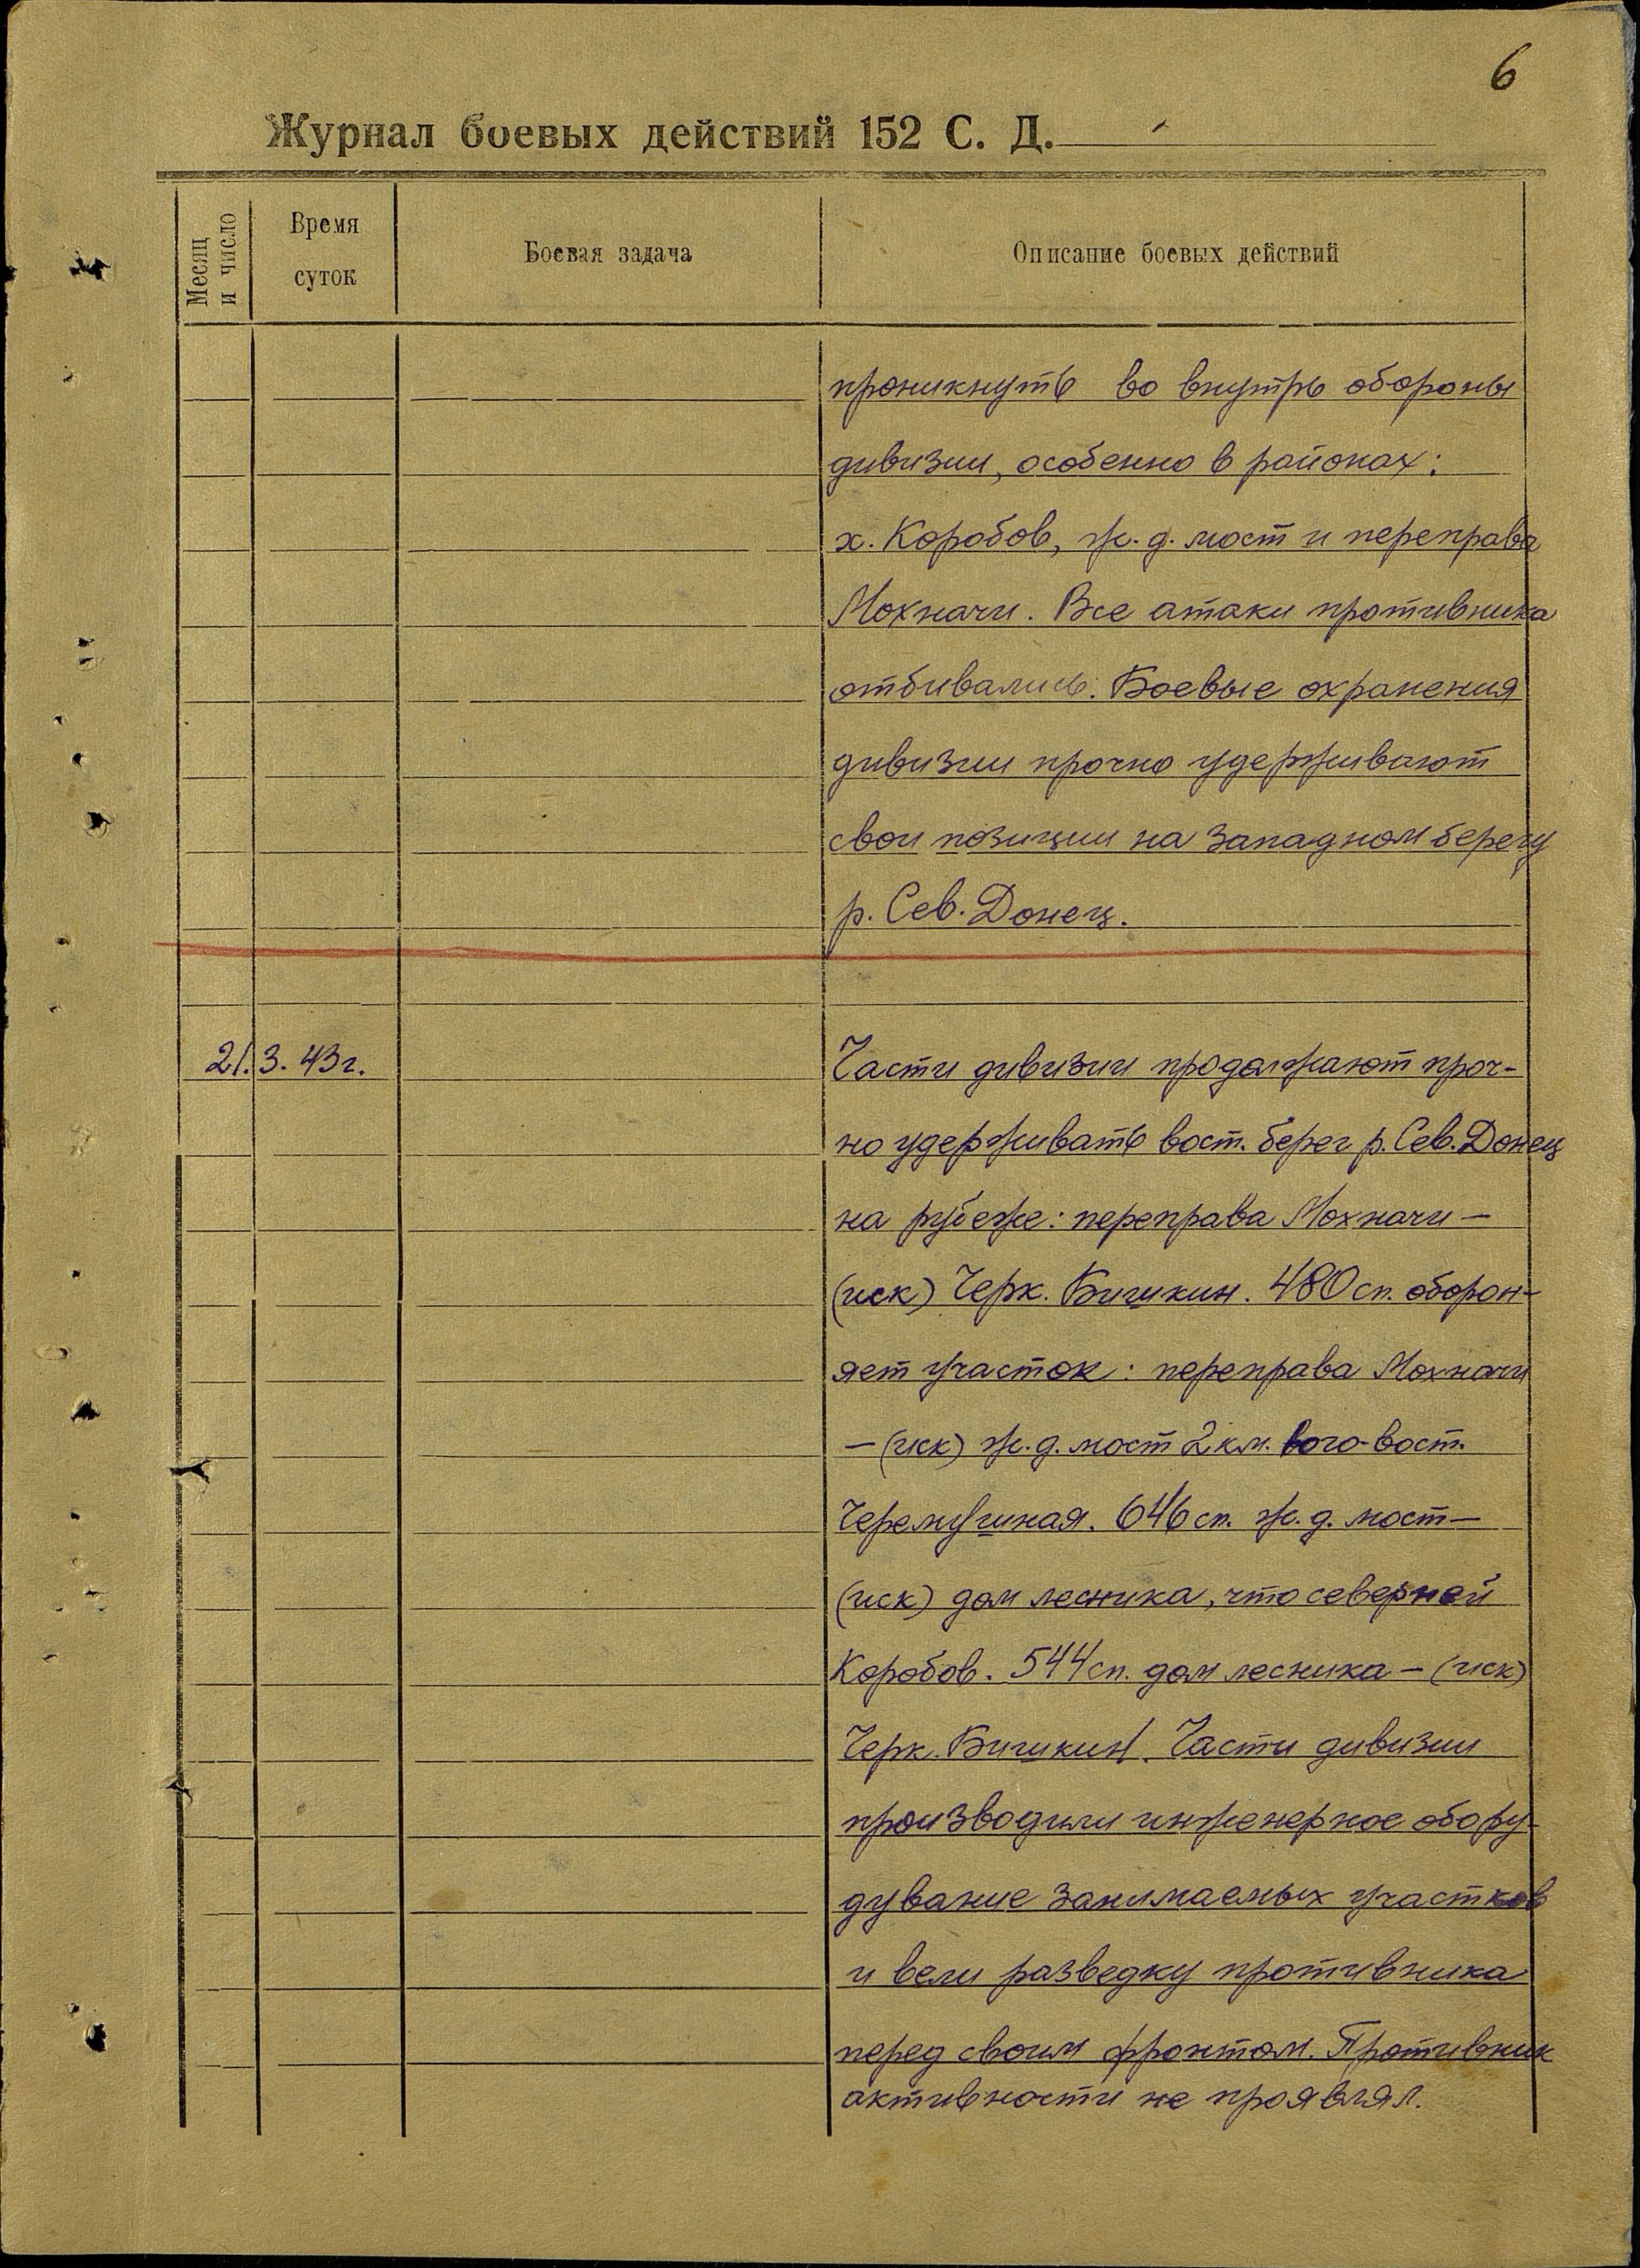 6
Журнал боевых действий 152 С. Д.
Месяц
и число
Время
суток
Боевая задача
Описание боевых действий
проникнуть во внутрь обороны
дивизии, особенно в районах:
х. Коробов, ж. д. мост и переправа
Мохначи. Все атаки противника
отбивались. Боевые охранения
дивизии прочно удерживают
свои позиции на западном берегу
р. Сев. Донец.
21.3.43г.
Части дивизии продолжают проч-
но удерживать вост. берег р. Сев. Донец
на рубеже: переправа Мохначи —
(иск) Черк. Бишкин. 480 сп. оборон-
яет участок: переправа Мохначи
— (иск) ж. д. мост 2 км. юго-вост.
Черемушная. 646 сп. ж. д. мост —
(иск) дом лесника, что северней
Коробов. 544 сп. дом лесника — (иск)
Черк. Бишкин. Части дивизии
производили инженерное обору-
дувание занимаемых участков
и вели разведку противника
перед своим фронтом. Противник
активности не проявлял.